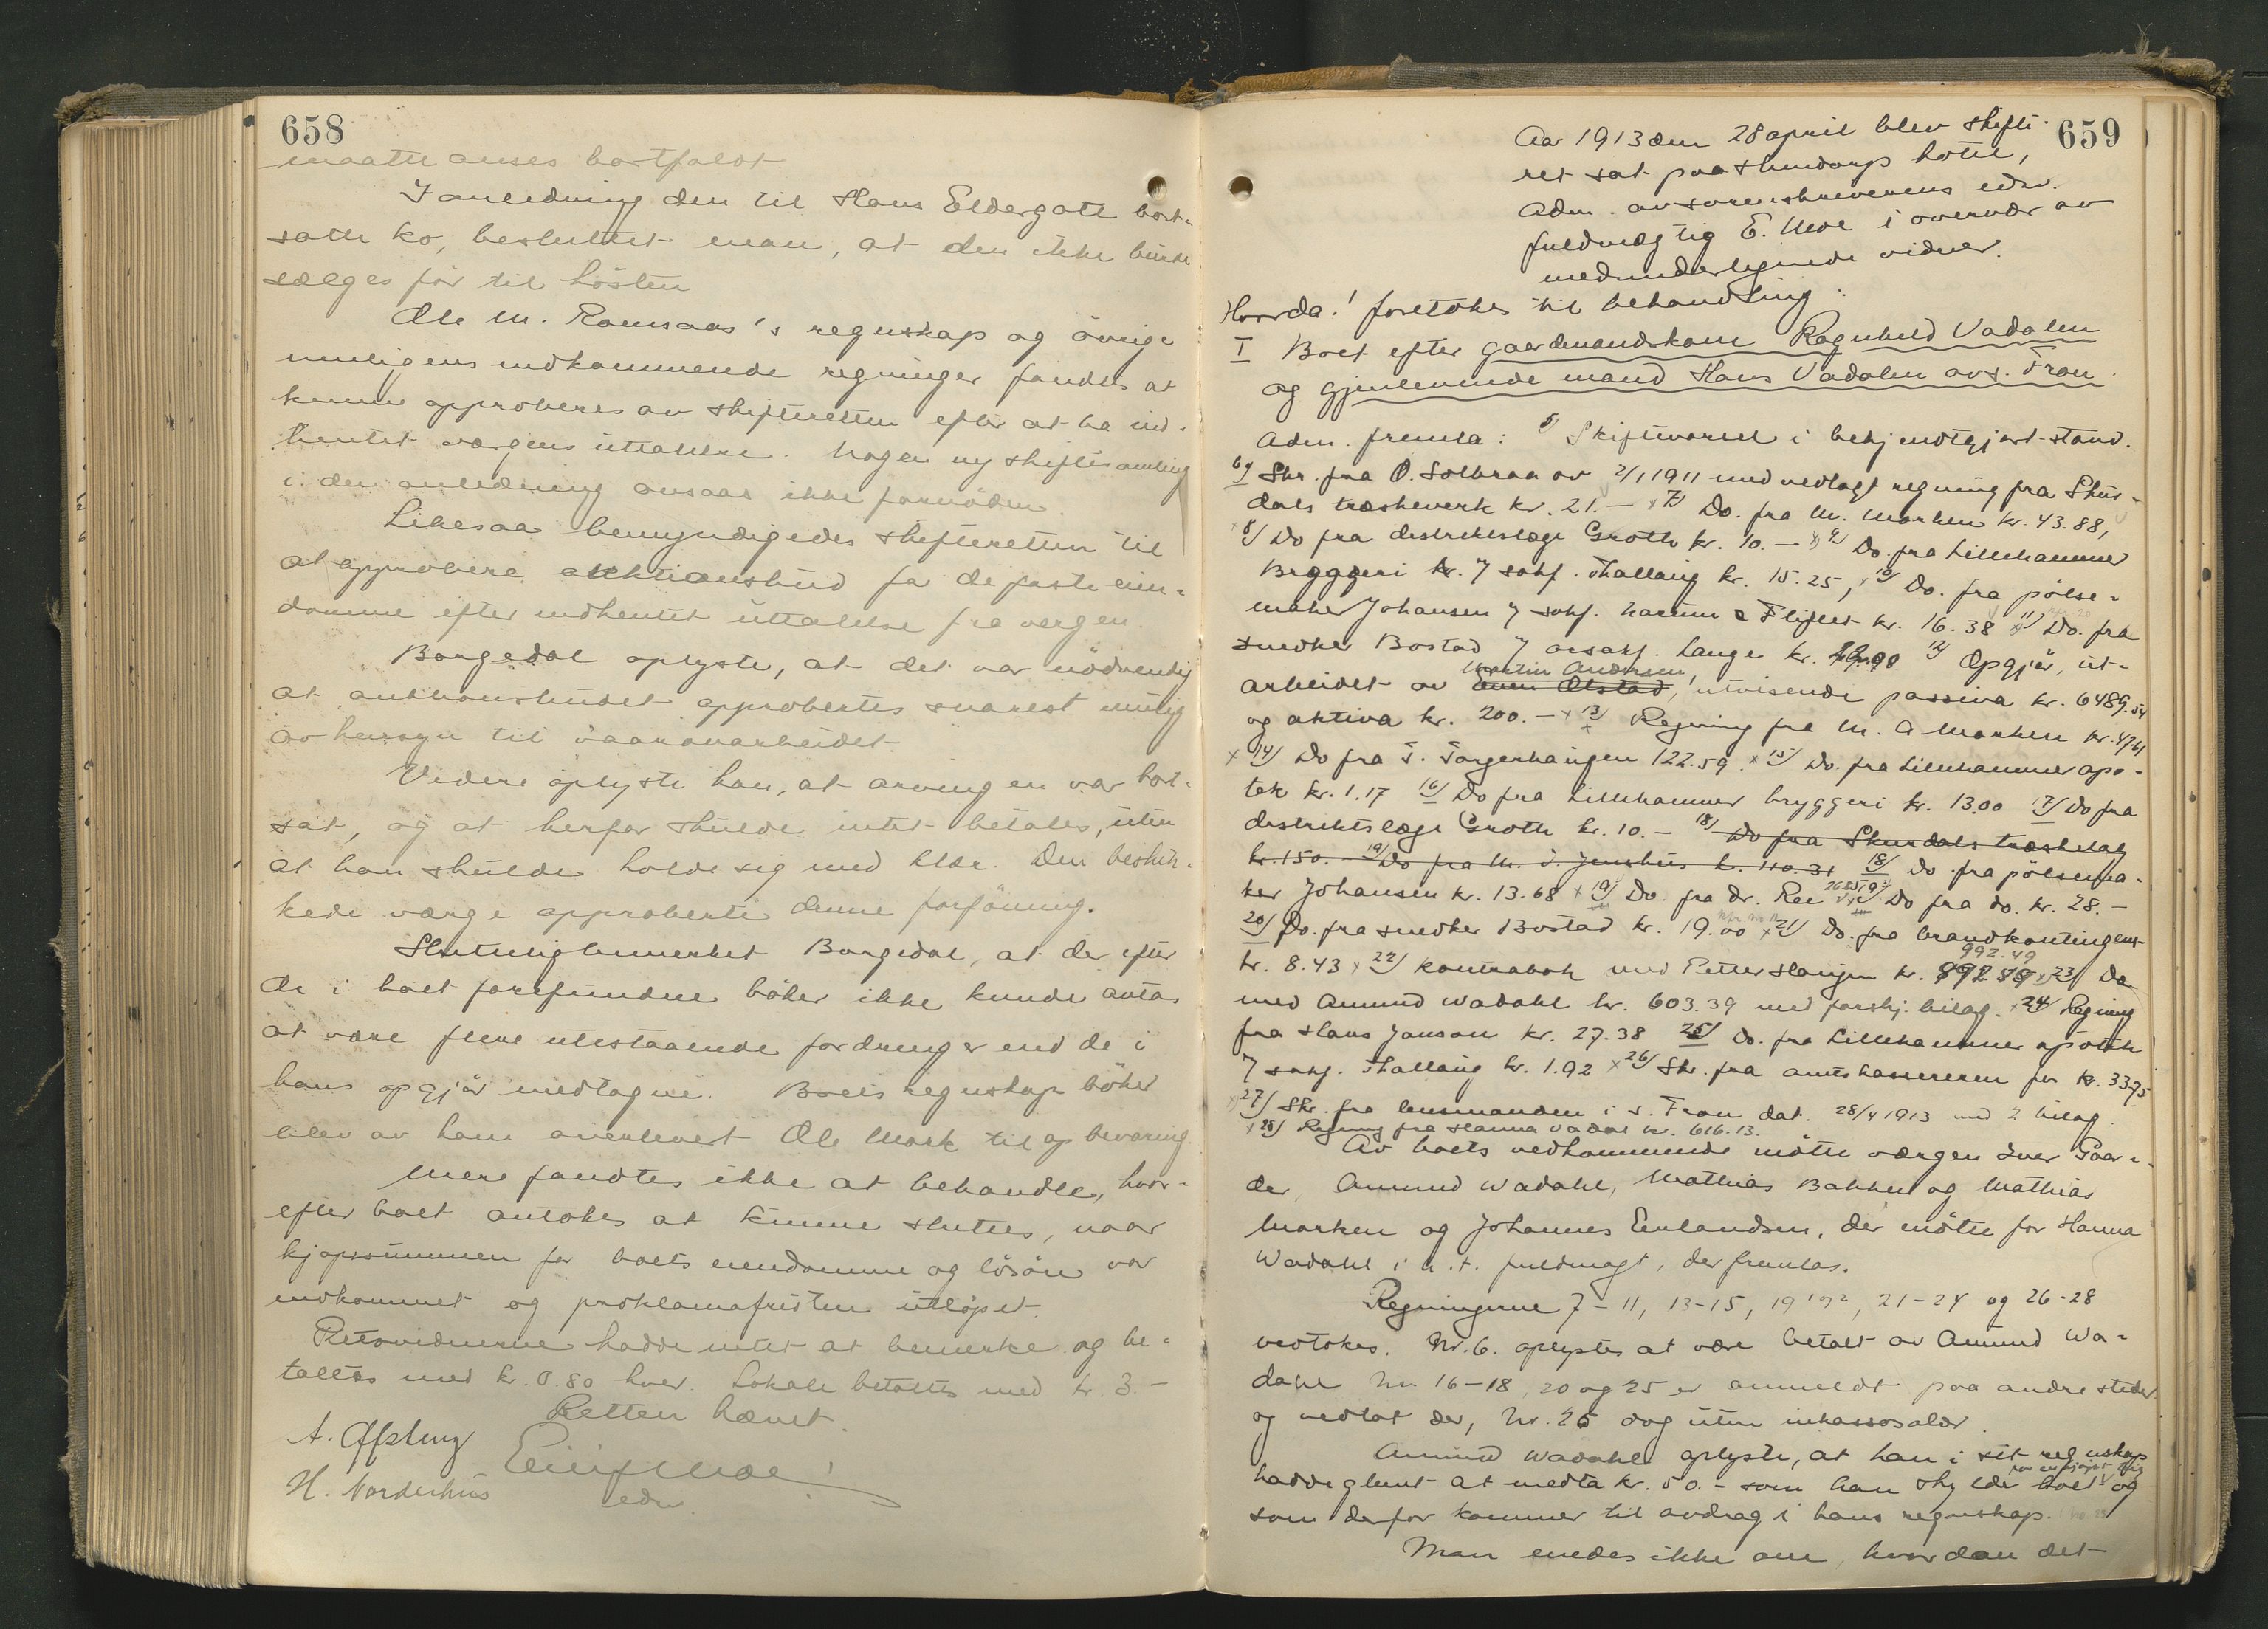 658
maatte anses bortfaldt
I anledning den til Hans Eldergott bort-
satte ko, besluttet man, at den ikke burde
sælges før til høsten
Ole M. Romsaas's regnskap og øvrige
muligens indkommende regninger fandtes at
kunne approberes av skifteretten efter at ha ind-
hentet værgens uttalelse. Nogen ny skiftesamling
i den anledning ansaas ikke fornøden.
Likesaa bemyndigedes skifteretten til
at approbere auktionsbud for de faste eien-
domme efter indhentet uttalelse fra værgen.
Borgedal oplyste, at det var nødvendig
at auktionsbudet approbertes snarest mulig
av hensyn til vaaronnarbeidet.
Videre oplyste han, at arvingen var bort-
sat, og at herfor skulde intet betales, uten
at han skulde holde sig med klær. Den beskik-
kede værge approberte denne forføining.
Sluttelig bemerket Borgedal, at der efter
de i boet forefundne bøker ikke kunde antas
at være flere utestaaende fordringer end de i
hans opgjør medtagne. Boets regnskapsbøker
blev av ham overlevert Ole Mork til opbevaring.
Mere fandtes ikke at behandle, hvor-
efter boet antokes at kunne sluttes, naar
kjøpesummen for boets eiendomme og løsøre var
indkommet og proklamafristen utløpet.
Retsvidnerne hadde intet at bemerke og be-
taltes med kr. 0.80 hver. Lokale betaltes med kr. 3.-
Retten hævet.
A. Offsteng
Einif Moe
H. Norderhus
edsv.
659
Aar 1913 den 28 april blev skifte-
ret sat paa Skurdorps hotel,
Adm. av sorenskriverens edsv.
fuldmægtig E. Moe i overvær av
medunderlegnede vidner.
Hvorda! foretokes til behandling:
I Boet efter gaardmandskone Ragnhild Vadalen
og gjenlevende mand Hans Vadalen avs. Fron.
Adm. fremla: 5) Skiftevarsel i bekjendtgjort stand.
6) Skr. fra O. Solbraa av 2/1 1911 med vedlagt regning fra Skur-
dals træskeverk kr. 21.— x 7) Do. fra M. Morken kr. 43.88,
x 8) Do fra distriktslæge Groth kr. 10.— x 9) Do. fra Lillehammer
Bryggeri kr. 7 sakf. Thallaug kr. 15.25, x 10) Do. fra pølse-
maker Johansen 7 sakf. Harum & Flisflet kr. 16.38 x 11) Do. fra
snedker Bostad 7 orsakf. Lange kr. 22.98 12) Opgjør, ut-
Martin Andersen,
arbeidet av Even Olstad, utvisende passiva kr. 6489.54
og aktiva kr. 200.— x 13) Regning fra M. A. Morken kr. 47.61
x 14) Do fra T. Torgerhaugen 122.59. x 15) Do. fra Lillehammer apo-
tek kr. 1.17 16) Do fra Lillehammer bryggeri kr. 13.00 17) Do fra
distriktslæge Groth kr. 10.— 18) Do fra Skurdals træskelag
kr. 150.— 19) Do fra M. J. Jenshus kr. 110.31 18) Do. fra pølsema-
ker Johansen kr. 13.68 x 19) Do. fra dr. Ree 26.25 19²) Do fra do. kr. 28.—
20) Do. fra snedker Bostad kr. 19.00 x 21) Do. fra brandkontingent
992.49
kr. 8.43 x 22) kontrabok med Petter Haugen kr. x 23) Do
med Amund Wadahl kr. 603.39 med forskj. bilag. x 24) Regning
fra Hans Janson kr. 27.38 25) Do. fra Lillehammer apotek
7 sakf. Thallaug kr. 1.92 x 26) Skr. fra amtskassereren for kr. 33.75
27) Skr. fra lensmanden i s. Fron dat. 28/4 1913 med 2 bilag.
x 28) Regning fra Hanna Vadal kr. 616.13.
Av boets vedkommende møtte værgen Iver Gaar-
der, Amund Wadahl, Mathias Bakken og Mathias
Morken og Johannes Enlandsen, der møtte for Hanna
Wadahl i h. t. fuldmagt, der fremlas.
Regningerne 7-11, 13-15, 19 19², 21-24 og 26-28
vedtokes. Nr. 6. oplystes at være betalt av Amund Wa-
dahl Nr. 16-18, 20 og 25 er anmeldt paa andre steder
og vedtat der, Nr. 25 dog uten inkassosalær.
Amund Wadahl oplyste, at han i sit regnskap
hadde glemt at medta kr. 50.- som han skylder boet og
som derfor kommer til avdrag i hans regnskap.
Man enedes ikke om, hvordan det